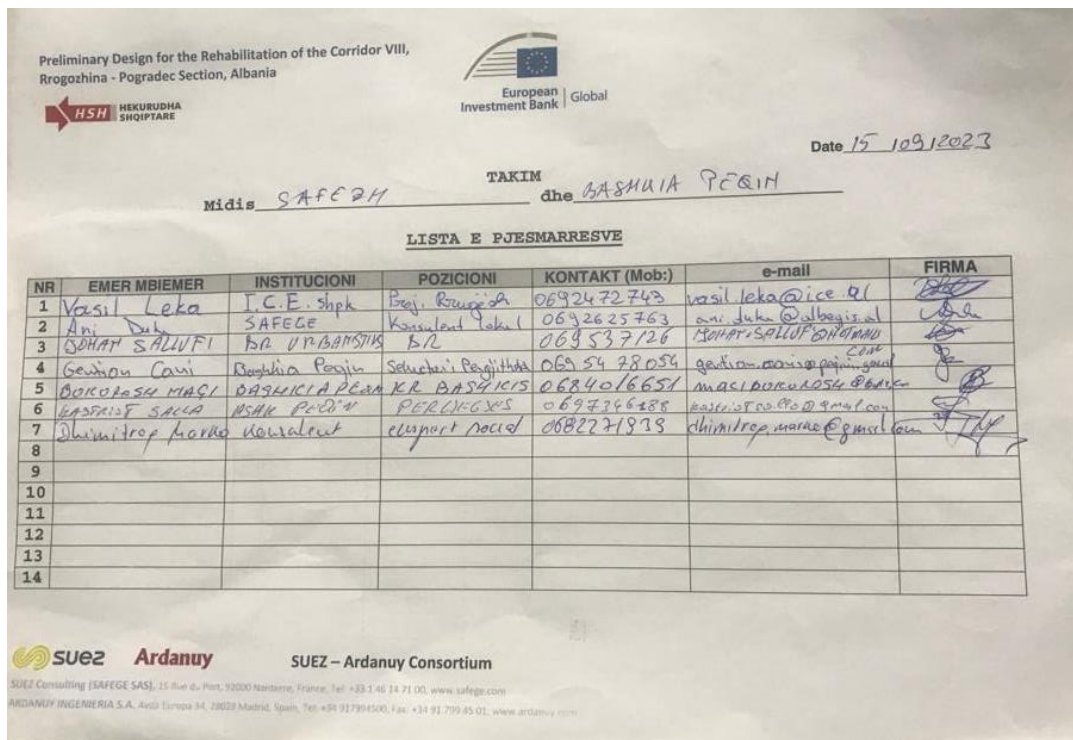 Preliminary Design for the Rehabilitation of the Corridor VIII,
Rrogozhina - Pogradec Section, Albania
HSH HEKURUDHA SHQIPTARE
European Investment Bank | Global
Date 15 / 09 / 2023
TAKIM
Midis SAFEZH dhe BASHKIA PEQIN
LISTA E PJESMARRESVE
NR EMER MBIEMER INSTITUCIONI POZICIONI KONTAKT (Mob:) e-mail FIRMA
1 Vasil Leka I.C.E. shpk 0692472743 vasil.leka@ice.al
2 Ani Duka SAFEGE Konsulent lokal 0692625763 ani.duka@albegis.al
3 SALLUFI DR 069537126
4 Gentian Cani Bashkia Peqin 069 54 78054
5 MAÇI KR BASHKIS 0684016651
6 KASTRIOT SALLA PEQIN 0697346188
7 Dhimitrop Marko Konsulent ekspert social 0682271939
8
9
10
11
12
13
14
suez Ardanuy SUEZ – Ardanuy Consortium
SUEZ Consulting (SAFEGE SAS), 15 Rue du Port, 92000 Nanterre, France, Tel: +33 1 46 14 71 00, www.safege.com
ARDANUY INGENIERIA S.A. Avda Europa 34, 28023 Madrid, Spain, Tel: +34 917994500, Fax: +34 91 799 45 01, www.ardanuy.com